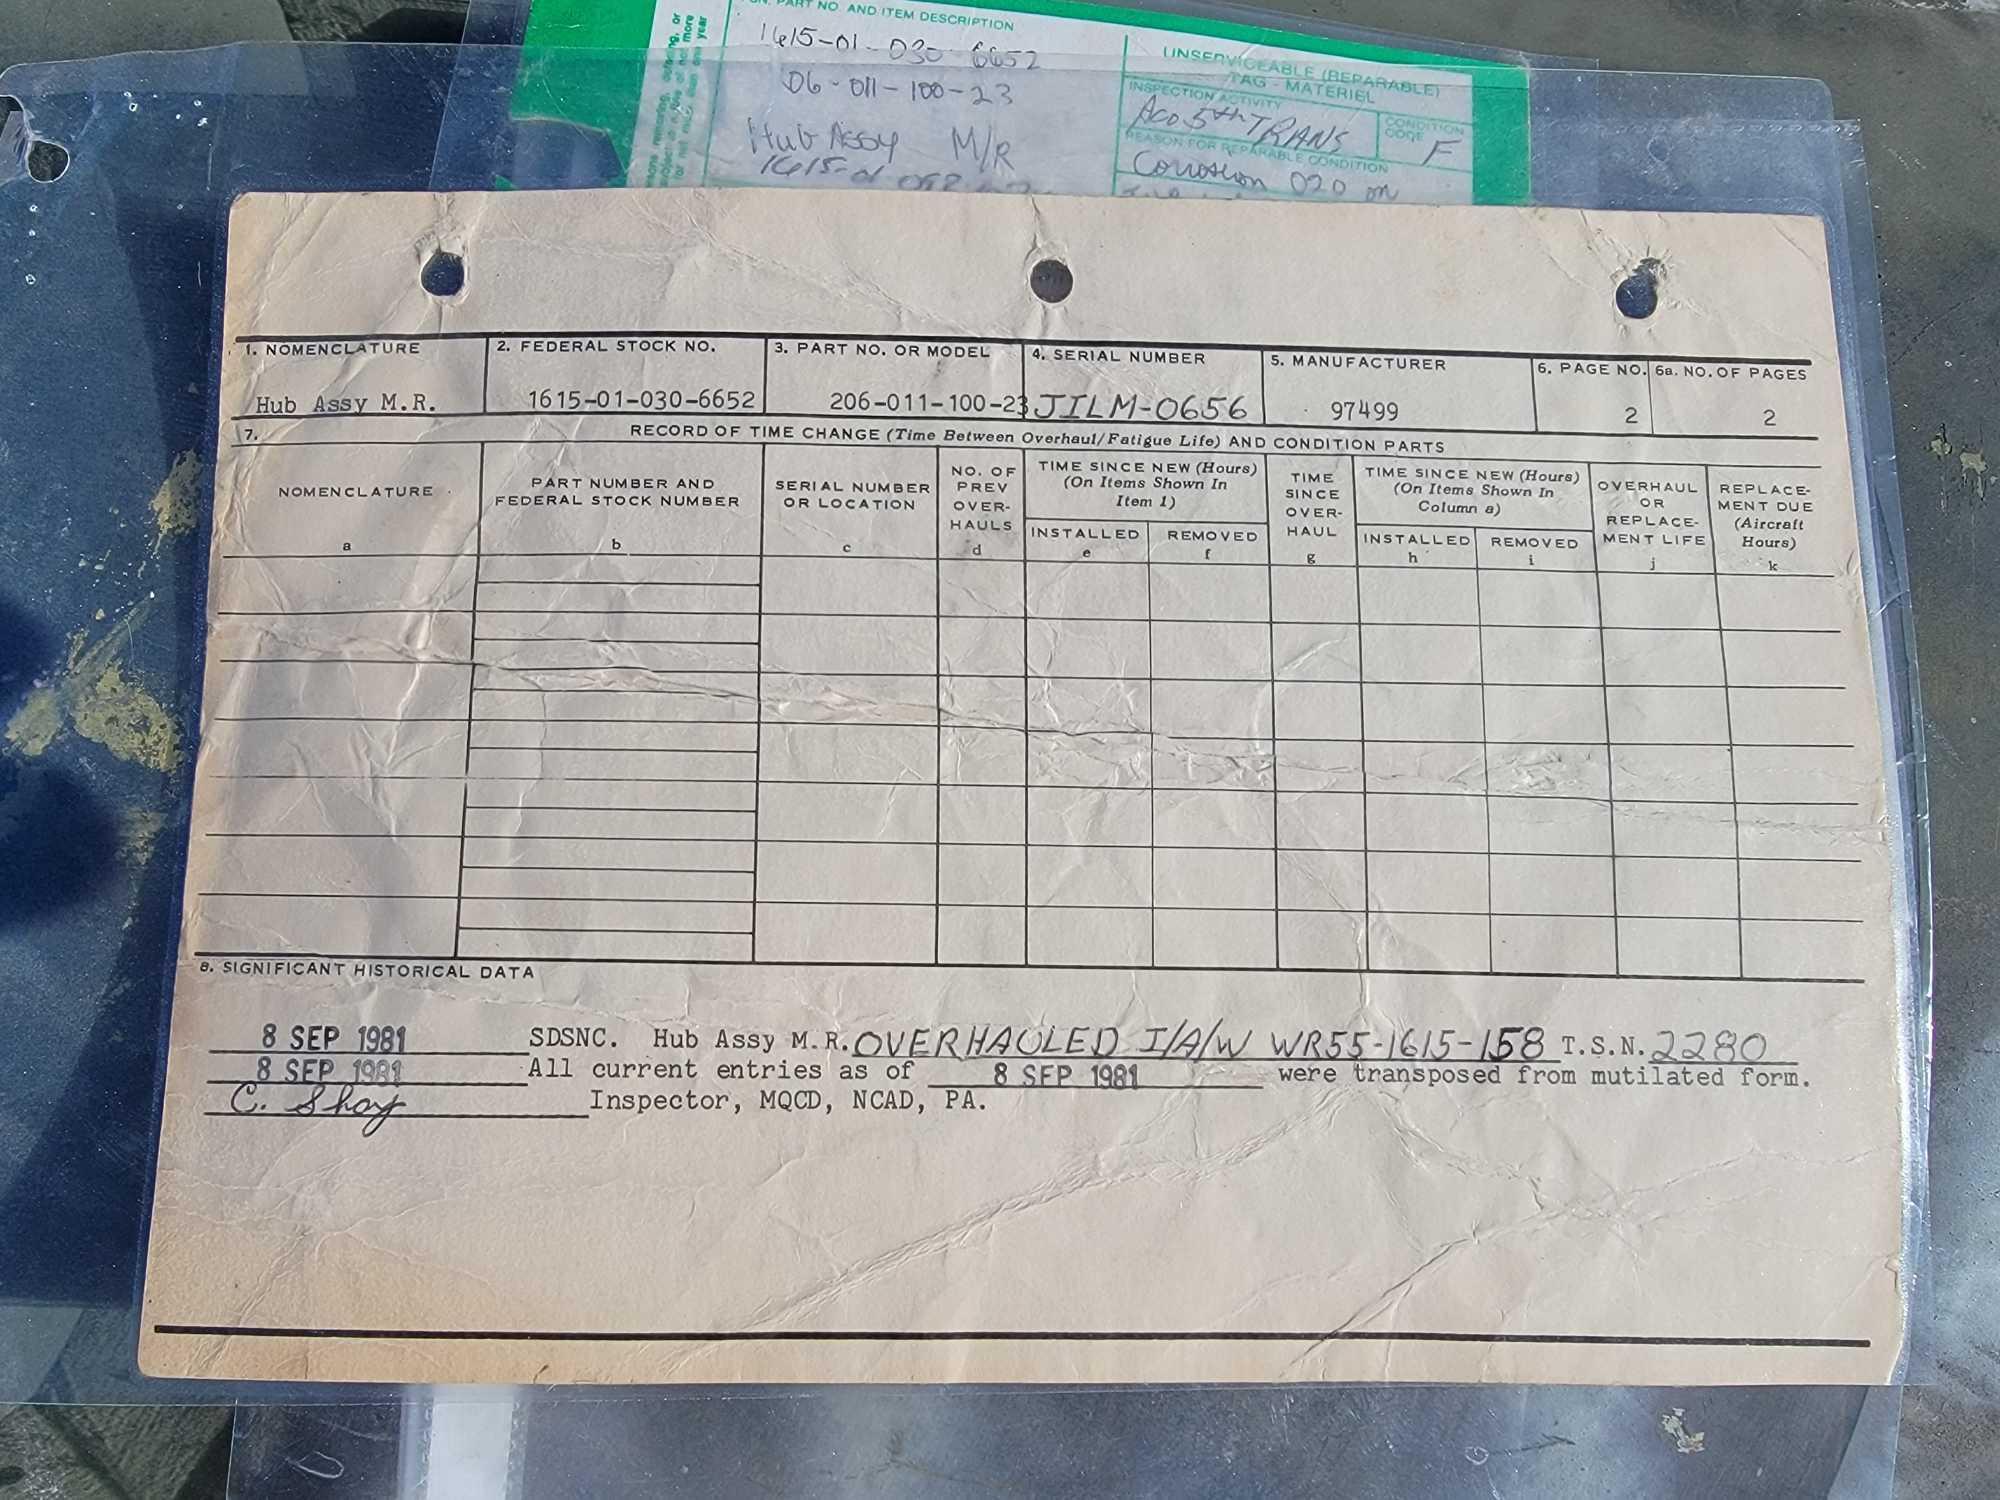 PART NO. AND ITEM DESCRIPTION
1615-01-030-6652
06-011-100-23
Hub Assy M/R
1615-01
UNSERVICEABLE (REPARABLE)
TAG - MATERIEL
INSPECTION ACTIVITY
Aco 5th TRANS
CONDITION
CODE
F
REASON FOR REPARABLE CONDITION
Corrosion 020 on
more
year
1. NOMENCLATURE
Hub Assy M.R.
2. FEDERAL STOCK NO.
1615-01-030-6652
3. PART NO. OR MODEL
206-011-100-23
4. SERIAL NUMBER
JILM-0656
5. MANUFACTURER
97499
6. PAGE NO.
2
6a. NO. OF PAGES
2
7. RECORD OF TIME CHANGE (Time Between Overhaul/Fatigue Life) AND CONDITION PARTS
NOMENCLATURE
a
PART NUMBER AND
FEDERAL STOCK NUMBER
b
SERIAL NUMBER
OR LOCATION
c
NO. OF
PREV
OVER-
HAULS
d
TIME SINCE NEW (Hours)
(On Items Shown In
Item 1)
INSTALLED
e
REMOVED
f
TIME
SINCE
OVER-
HAUL
g
TIME SINCE NEW (Hours)
(On Items Shown In
Column a)
INSTALLED
h
REMOVED
i
OVERHAUL
OR
REPLACE-
MENT LIFE
j
REPLACE-
MENT DUE
(Aircraft
Hours)
k
8. SIGNIFICANT HISTORICAL DATA
8 SEP 1981 SDSNC. Hub Assy M.R. OVERHAULED I/A/W WR55-1615-158 T.S.N. 2280
8 SEP 1981 All current entries as of 8 SEP 1981 were transposed from mutilated form.
C. Shay Inspector, MQCD, NCAD, PA.